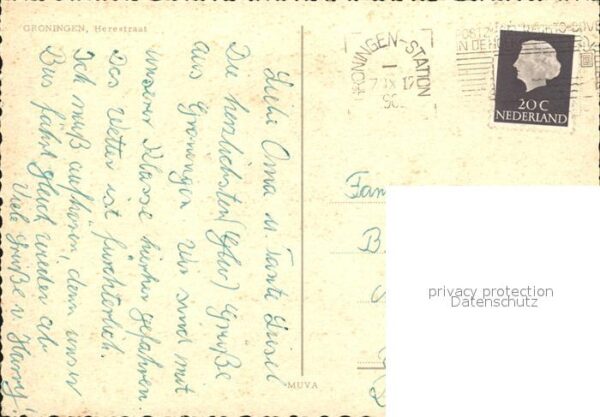 GRONINGEN, Herestraat
Liebe Oma u Tante Liesel
Die herzlichsten Grüße
aus Groningen. Wir sind mit
unserer Klasse hierher gefahren.
Das Wetter ist fürchterlich.
Ich muß aufhören, denn unser
Bus fährt gleich wieder ab
Viele Grüße v Harry
GRONINGEN-STATION
20 C
NEDERLAND
Fam
B
privacy protection
Datenschutz
MUVA